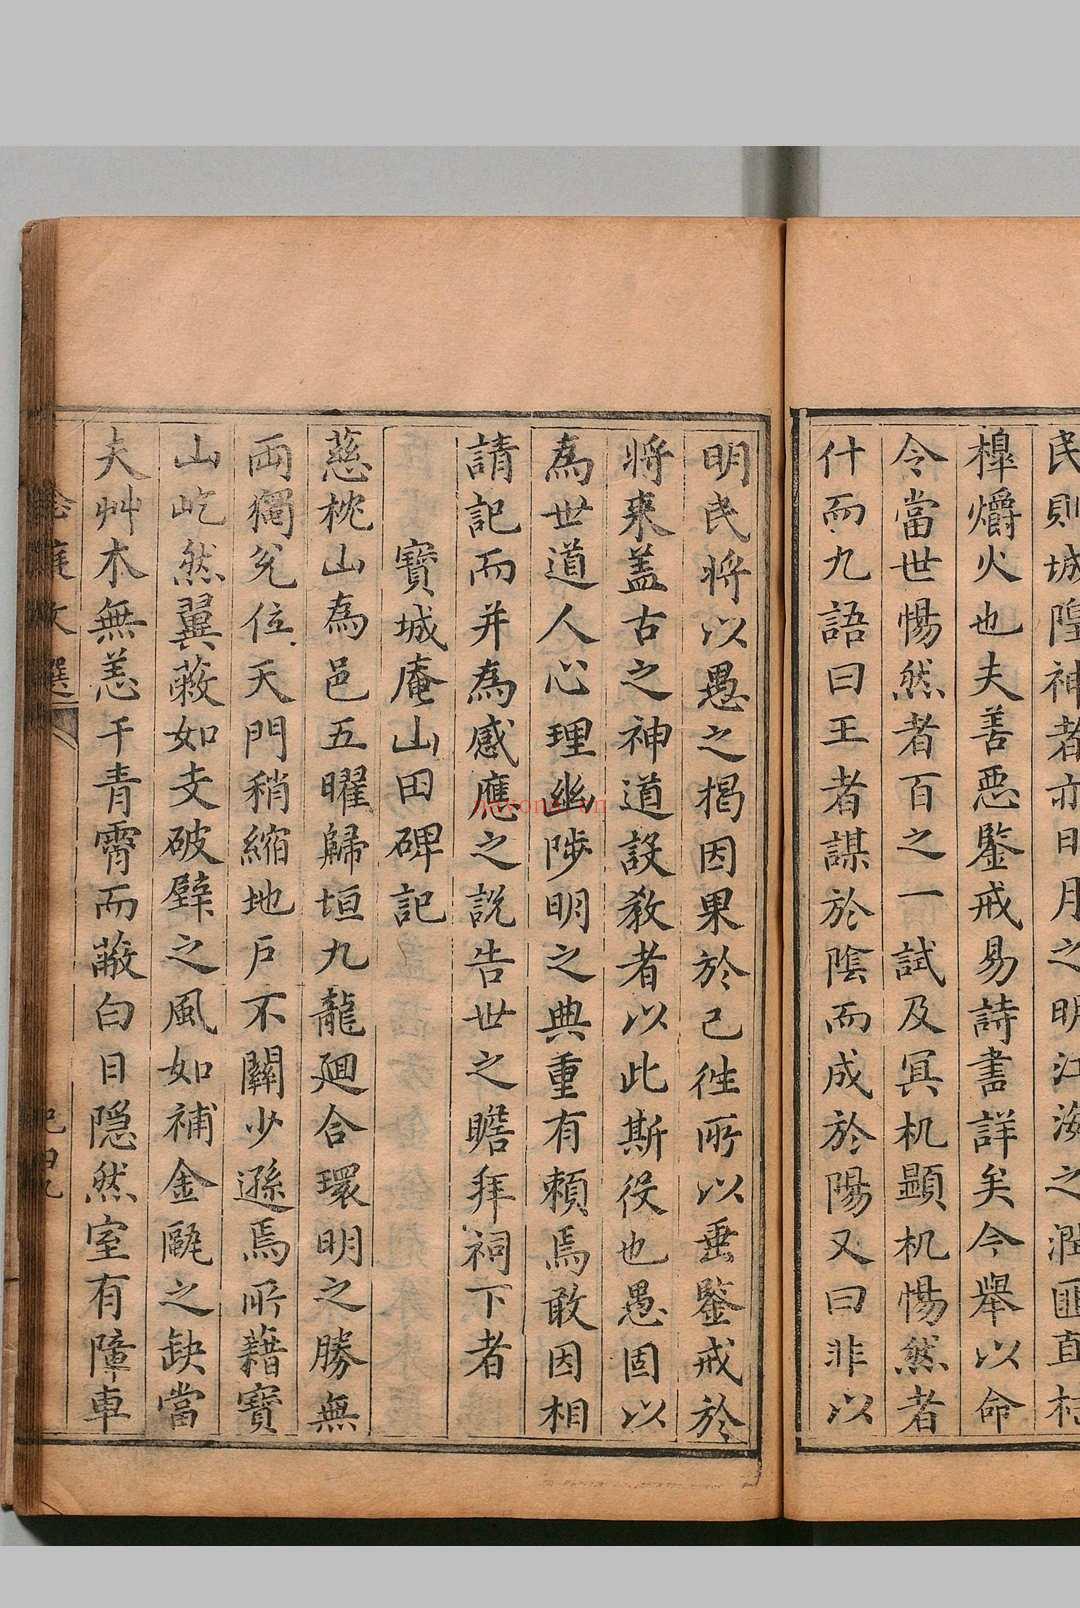 民則城隍神者亦日月之明江海之潤匪直
槔爝火也夫善惡鑒戒易詩書詳矣今舉以命
令當世惕然者百之一試及冥机顯机惕然者
什而九語曰王者謀於陰而成於陽又曰非以
明民將以愚之揭因果於已徃所以垂鑒戒於
將來盖古之神道設教者以此斯役也愚固以
為世道人心理幽陟明之典重有頼焉敢因相
請記而并為感應之說告世之瞻拜祠下者
寶城庵山田碑記
慈枕山為邑五曜歸垣九龍廻合環明之勝無
兩獨兊位天門稍縮地戶不關少遜焉所藉寶
山屹然翼蔽如支破壁之風如補金甌之缺當
夫艸木無恙干青霄而蔽白日隱然室有障車